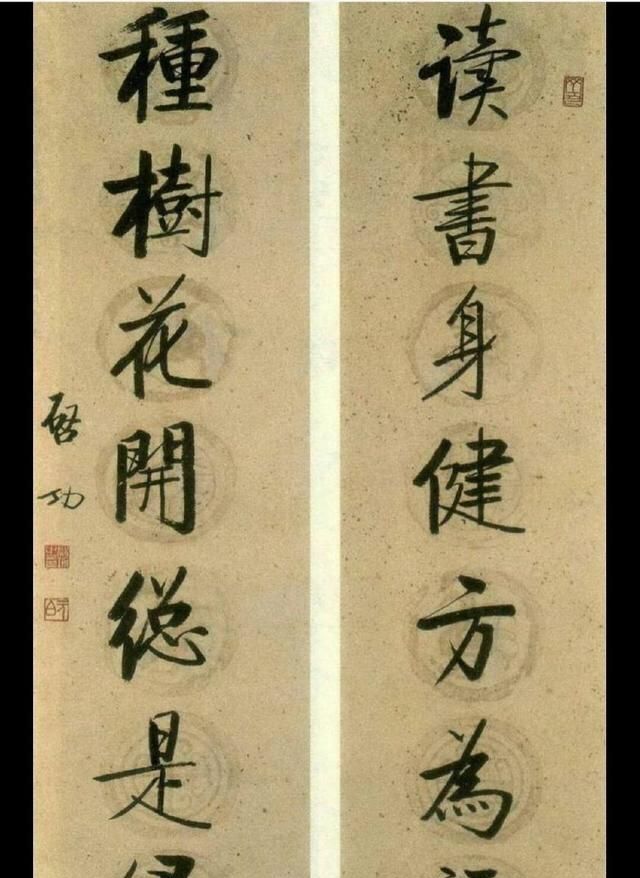 读書身健方為
種樹花開緫是
啓功